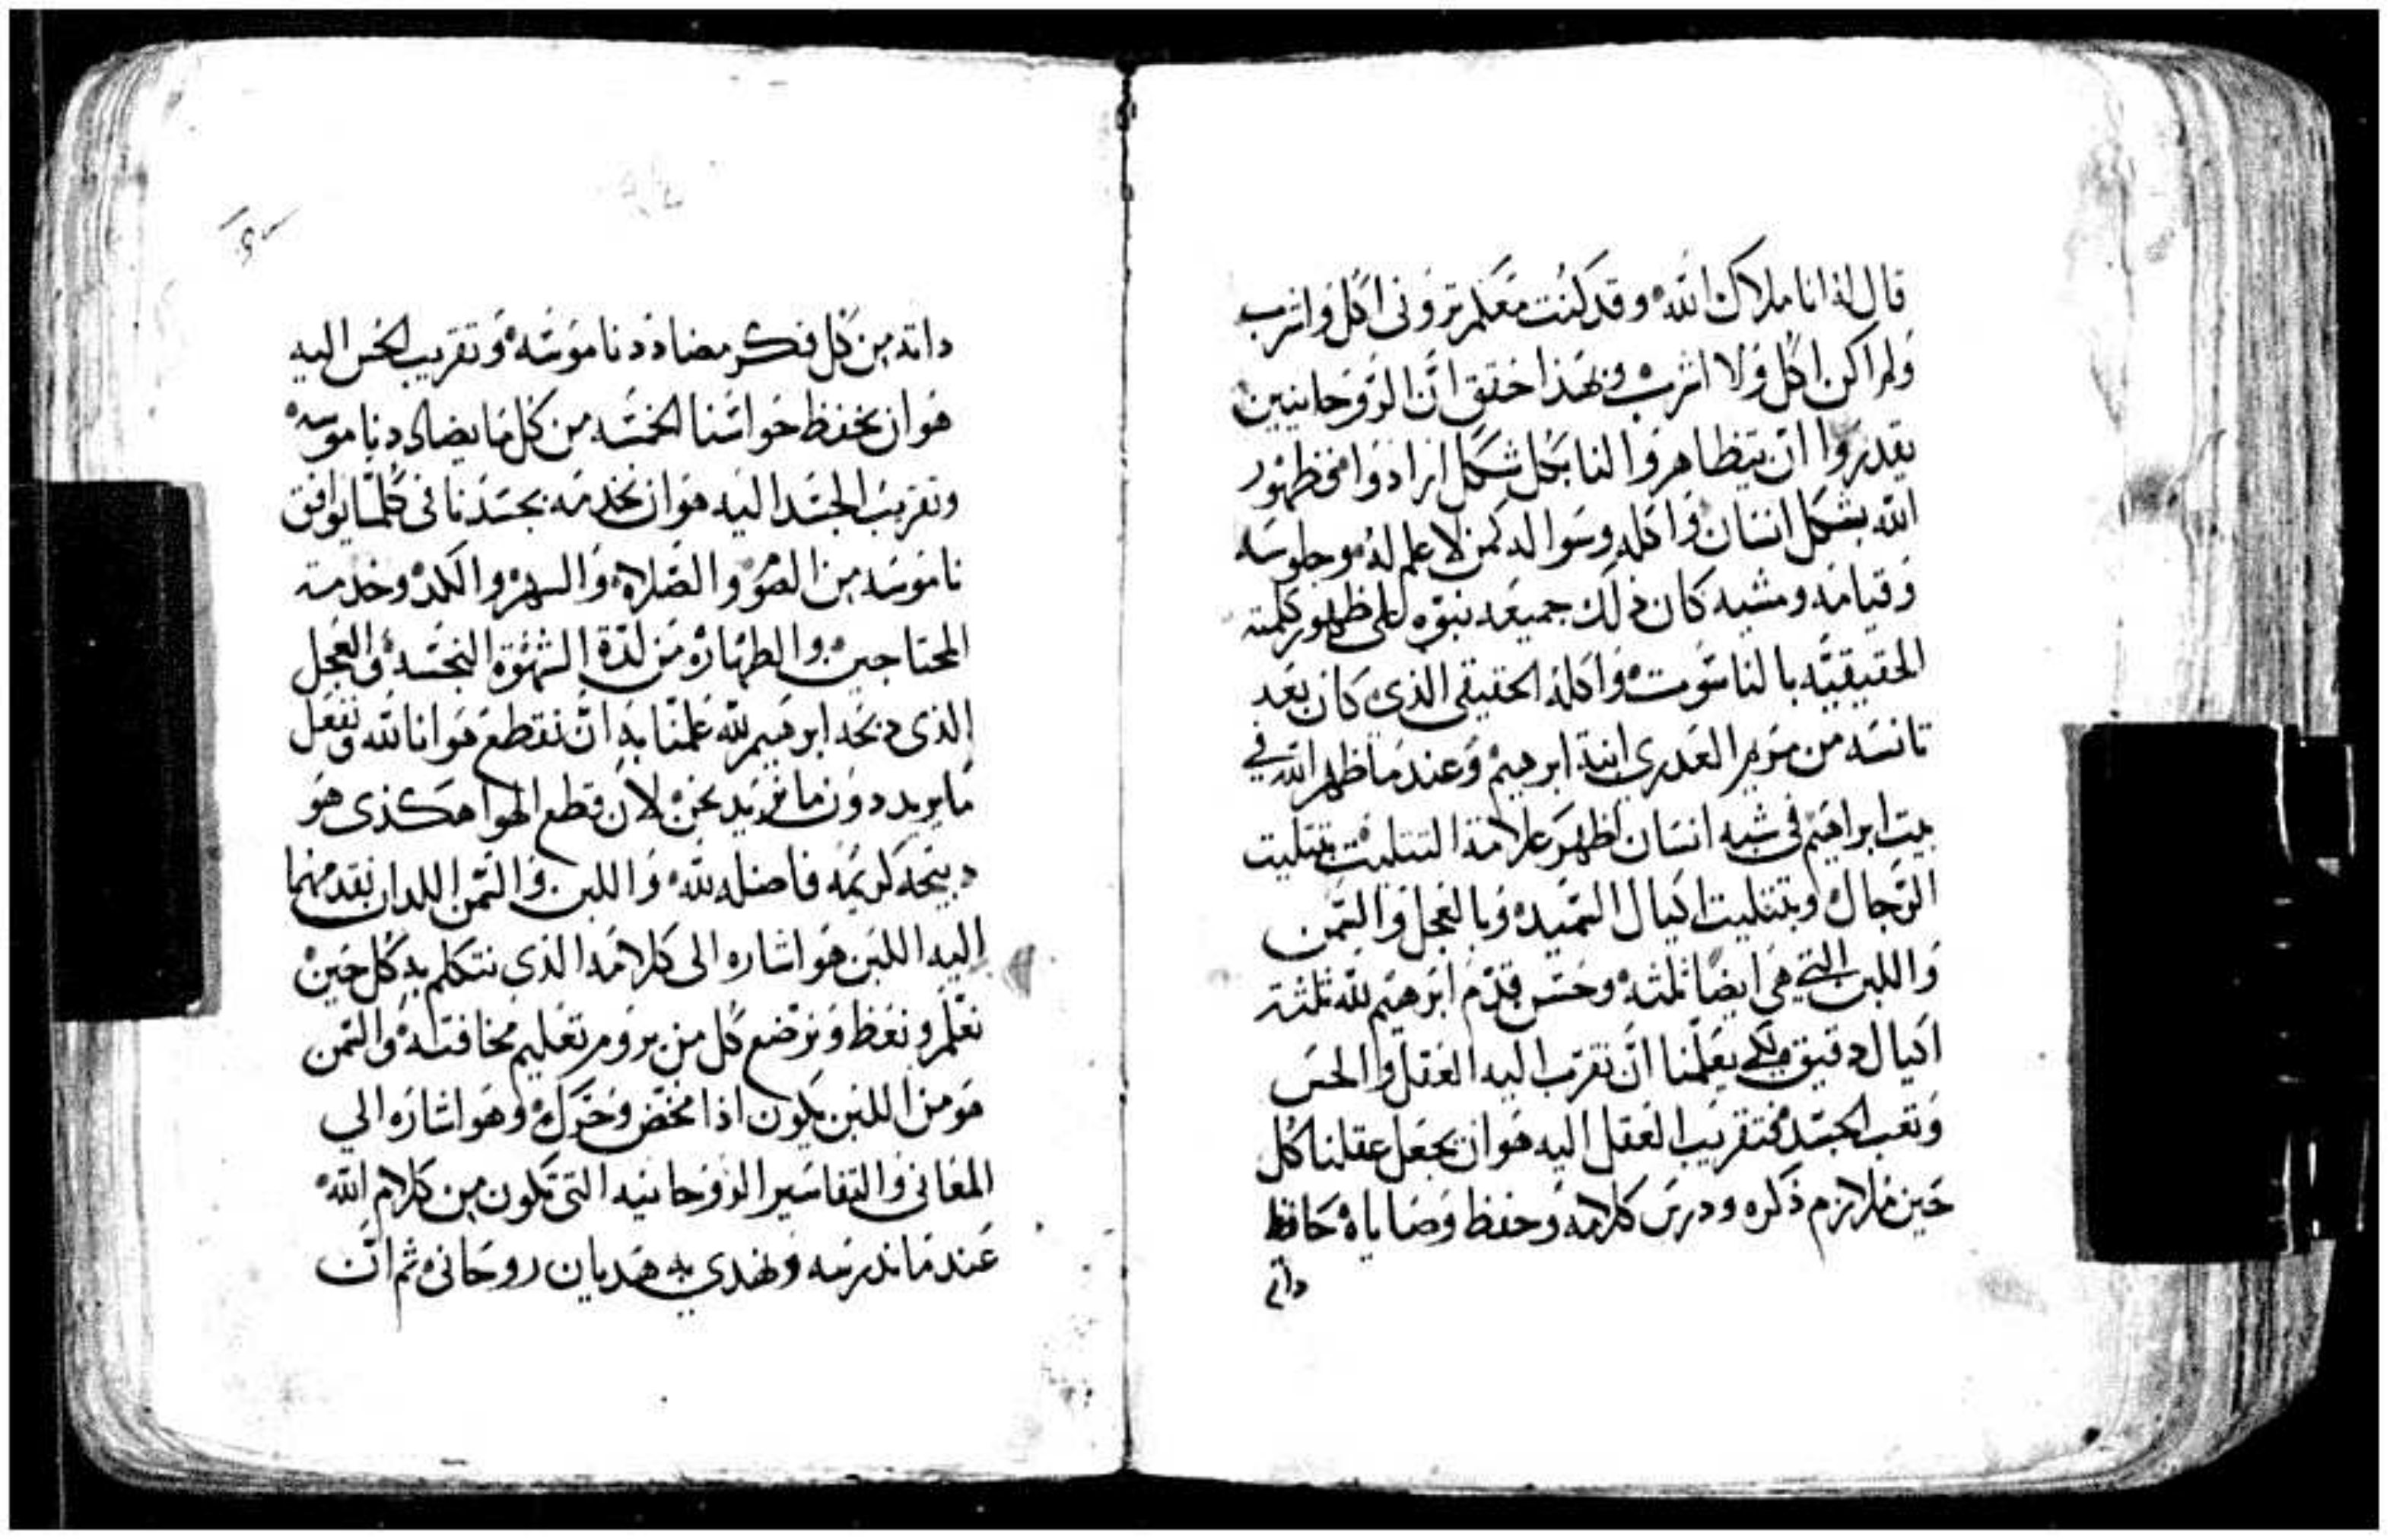 قال له انا ملاك الله وقد كنت معكم تروني اكل واشرب
ولم اكن اكل ولا اشرب وبهذا حقق ان الروحانيين
يقدروا ان يتظاهروا لنا بكل شكل ارادوا فظهور
الله بشكل انسان واكله وسواله كمن لا علم له وجلوسه
وقيامه ومشيه كان ذلك جميعه نبوه على ظهور كلمته
الحقيقيه بالناسوت واكله الحقيقي الذي كان بعد
تانسه من مريم العدري ابنة ابرهيم وعندما ظهر الله في
بيت ابراهيم في شبه انسان اظهر علامة التتليت بتتليت
الرجال وبتتليت اكيال السميد وبالعجل والسمن
واللبن التي هي ايضا ثلثه وحسن قدم ابرهيم لله ثلثة
اكيال دقيق لكي يعلمنا ان نقرب اليه العقل والحس
وتعب الجسد فتقريب العقل اليه هو ان يجعل عقلنا كل
حين ملازم ذكره ودرس كلامه وحفظ وصاياه حافظ
داته
داته من كل فكر مضادد ناموسه وتقريب الحس اليه
هو ان نحفظ حواسنا الخمسه من كل ما يضادد ناموسه
وتقريب الجسد اليه هو ان نخدمه بجسدنا في كلما يوافق
ناموسه من الصوم والصلاه والسهر والكد وخدمة
المحتاجين والطهاره من لدة الشهوة النجسه والعجل
الذي دبحه ابرهيم لله علمنا به ان نقطع هوانا لله ونفعل
ما يريد دون ما نريد نحن لان قطع الهوا هكذي هو
دبيحه كريمه فاضله لله واللبن والسمن اللدان نقدمهما
اليه اللبن هو اشاره الى كلامه الذي نتكلم به كل حين
نعلم ونعظ ونرضع كل من يروم تعليم مخافته والسمن
هو من اللبن يكون اذا مخض وحرك وهو اشاره الي
المعاني والتفاسير الروحانيه التي تكون من كلام الله
عندما ندرسه ونهدي به هديان روحاني ثم ان